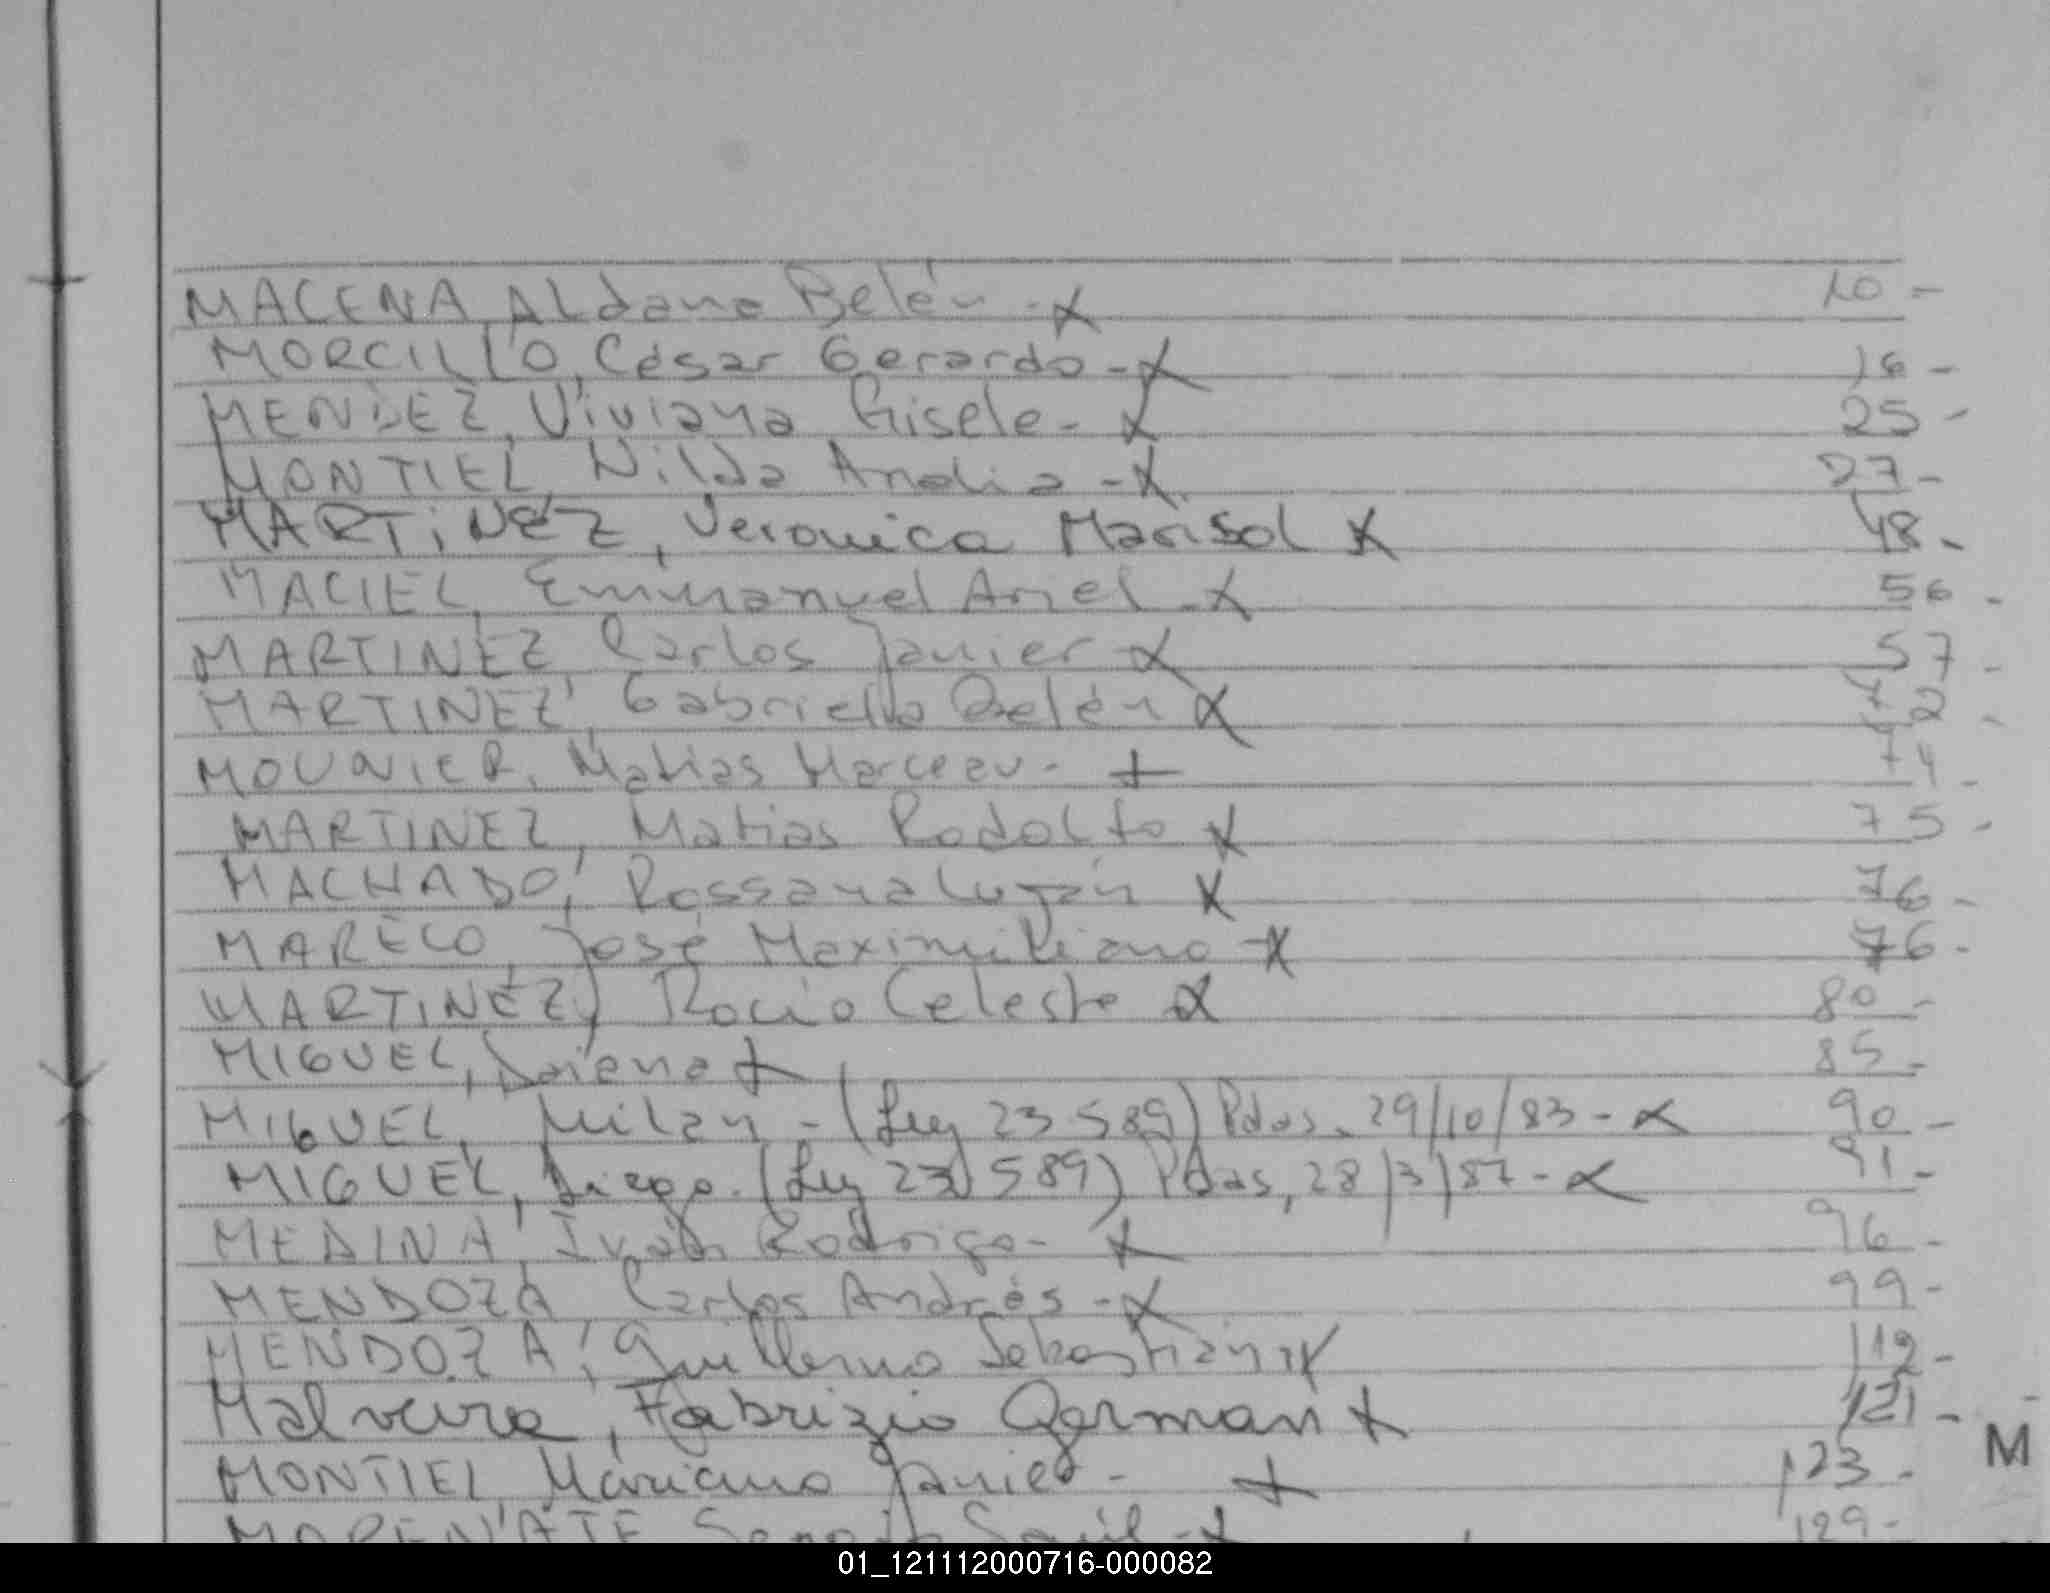 MACENA, Aldana Belén -x 10 -
MORCILLO, César Gerardo -x 16 -
MENDEZ, Viviana Gisele - x 25 -
MONTIEL, Nilda Analia -x 27 -
MARTiNEZ, Veronica Marisol x 48 -
MACIEL, Emmanuel Ariel -x 56 -
MARTINEZ Carlos Javier x 57 -
MARTINEZ, Gabriella Belén x 72 -
MOUNIER, Matias Marceau - + 74 -
MARTINEZ, Matias Rodolfo x 75 -
MACHADO, Rossana Luján x 76 -
MARECO, José Maximiliano -x 76 -
MARTINEZ, Rocio Celeste x 80 -
MIGUEL, Daiana x 85 -
MIGUEL, Milan - (Ley 23 589) Pdas, 29/10/83 - x 90 -
MIGUEL, Diego. (Ley 23 589) Pdas, 28/3/87 - x 91 -
MEDINA, Iván Rodrigo - x 96 -
MENDOZA Carlos Andrés - x 99 -
MENDOZA, Guillermo Sebastián x 119 -
Malveira, Fabrizio German x 121 -
MONTIEL Mariano Javier - x 123 -
129 -
M
01_121112000716-000082